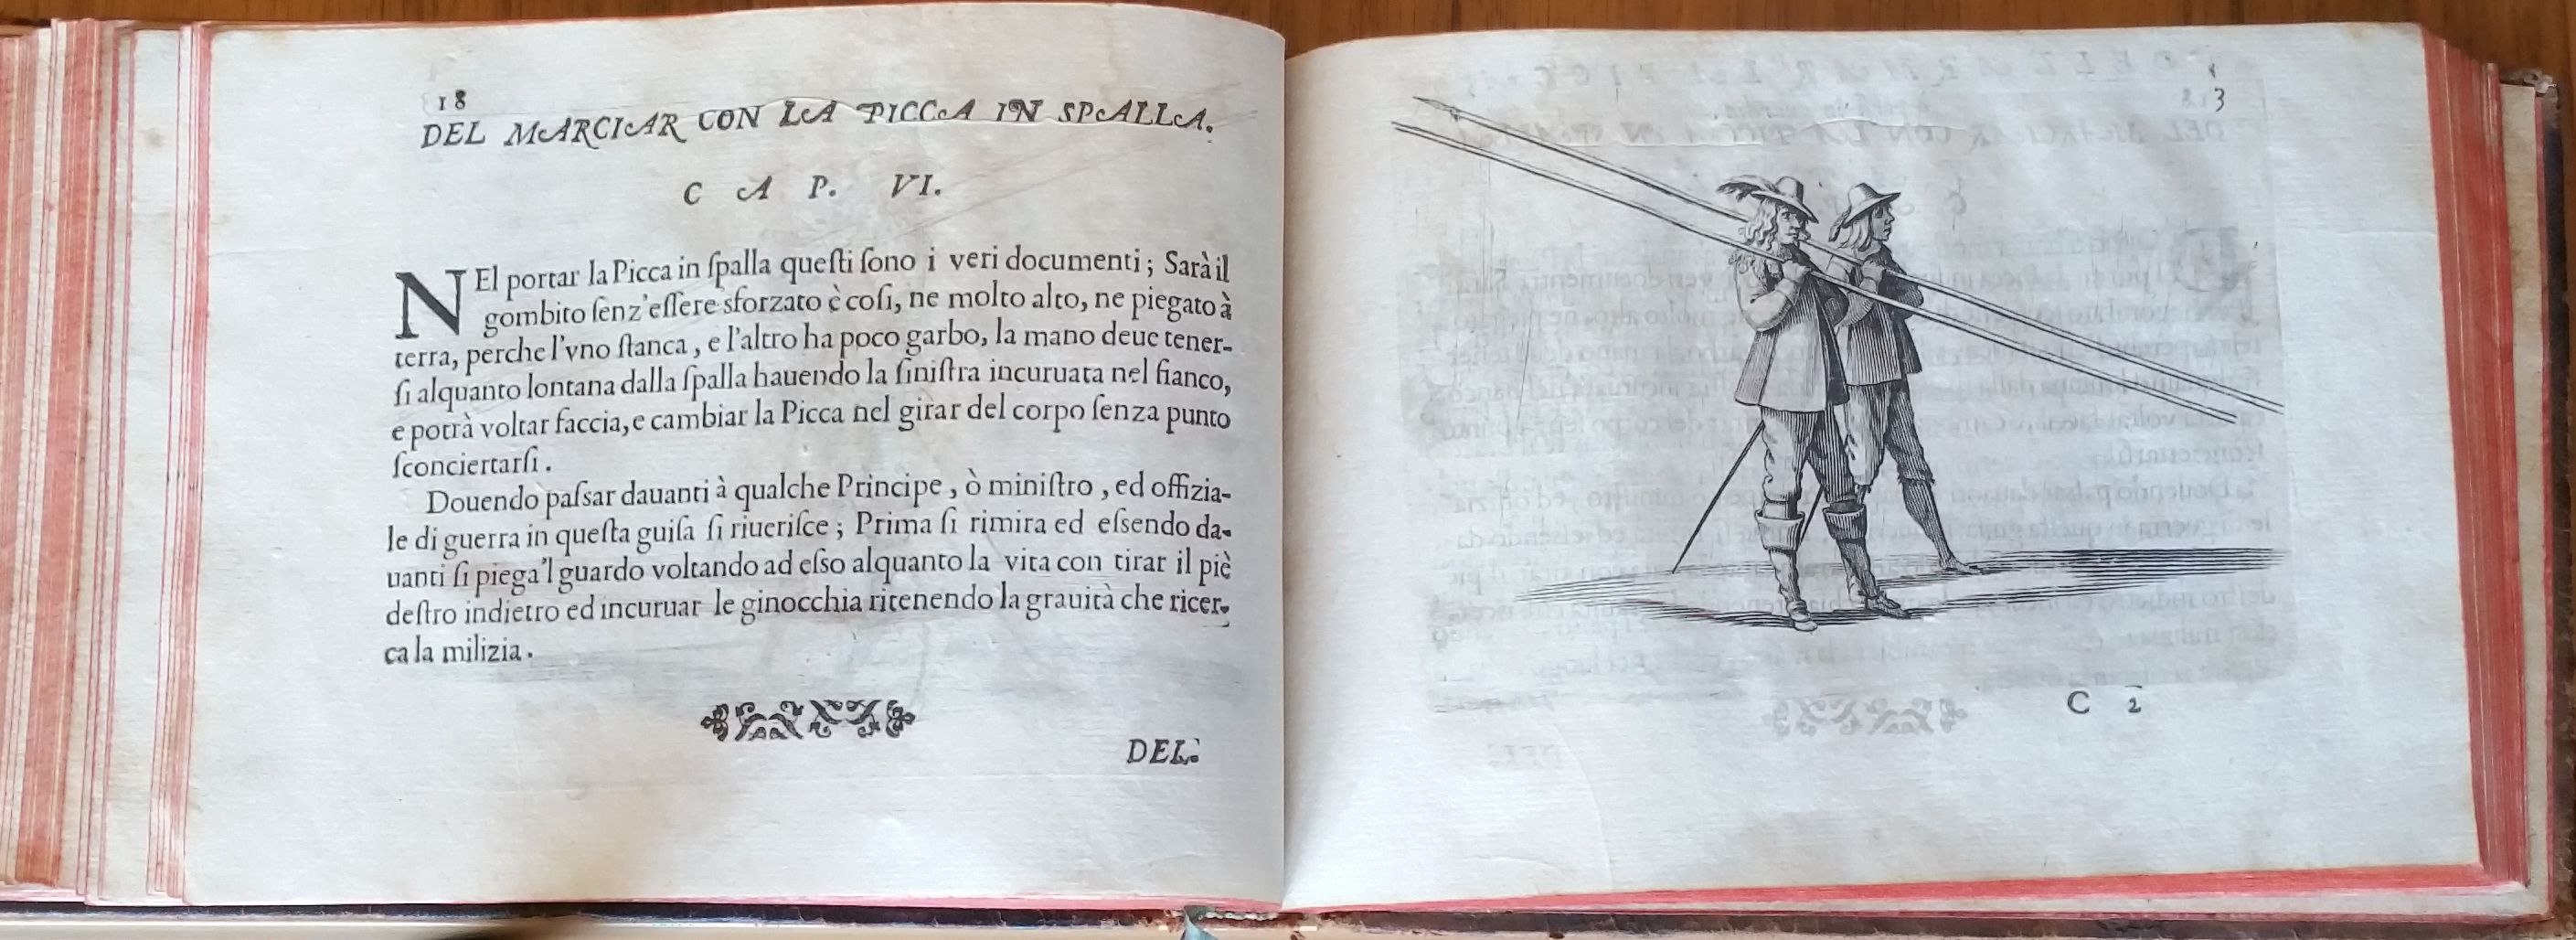 18
DEL MARCIAR CON LA PICCA IN SPALLA.
CAP. VI.
NEl portar la Picca in ſpalla queſti ſono i veri documenti; Sarà il
gombito ſenz'eſſere sforzato è coſi, ne molto alto, ne piegato à
terra, perche l'vno ſtanca, e l'altro ha poco garbo, la mano deue tener-
ſi alquanto lontana dalla ſpalla hauendo la ſiniſtra incuruata nel fianco,
e potrà voltar faccia, e cambiar la Picca nel girar del corpo ſenza punto
ſconciertarſi.
Douendo paſsar dauanti à qualche Principe, ò miniſtro, ed offizia-
le di guerra in queſta guiſa ſi riueriſce; Prima ſi rimira ed eſsendo da-
uanti ſi piega'l guardo voltando ad eſso alquanto la vita con tirar il piè
deſtro indietro ed incuruar le ginocchia ritenendo la grauità che ricer-
ca la milizia.
DEL.
3
C 2